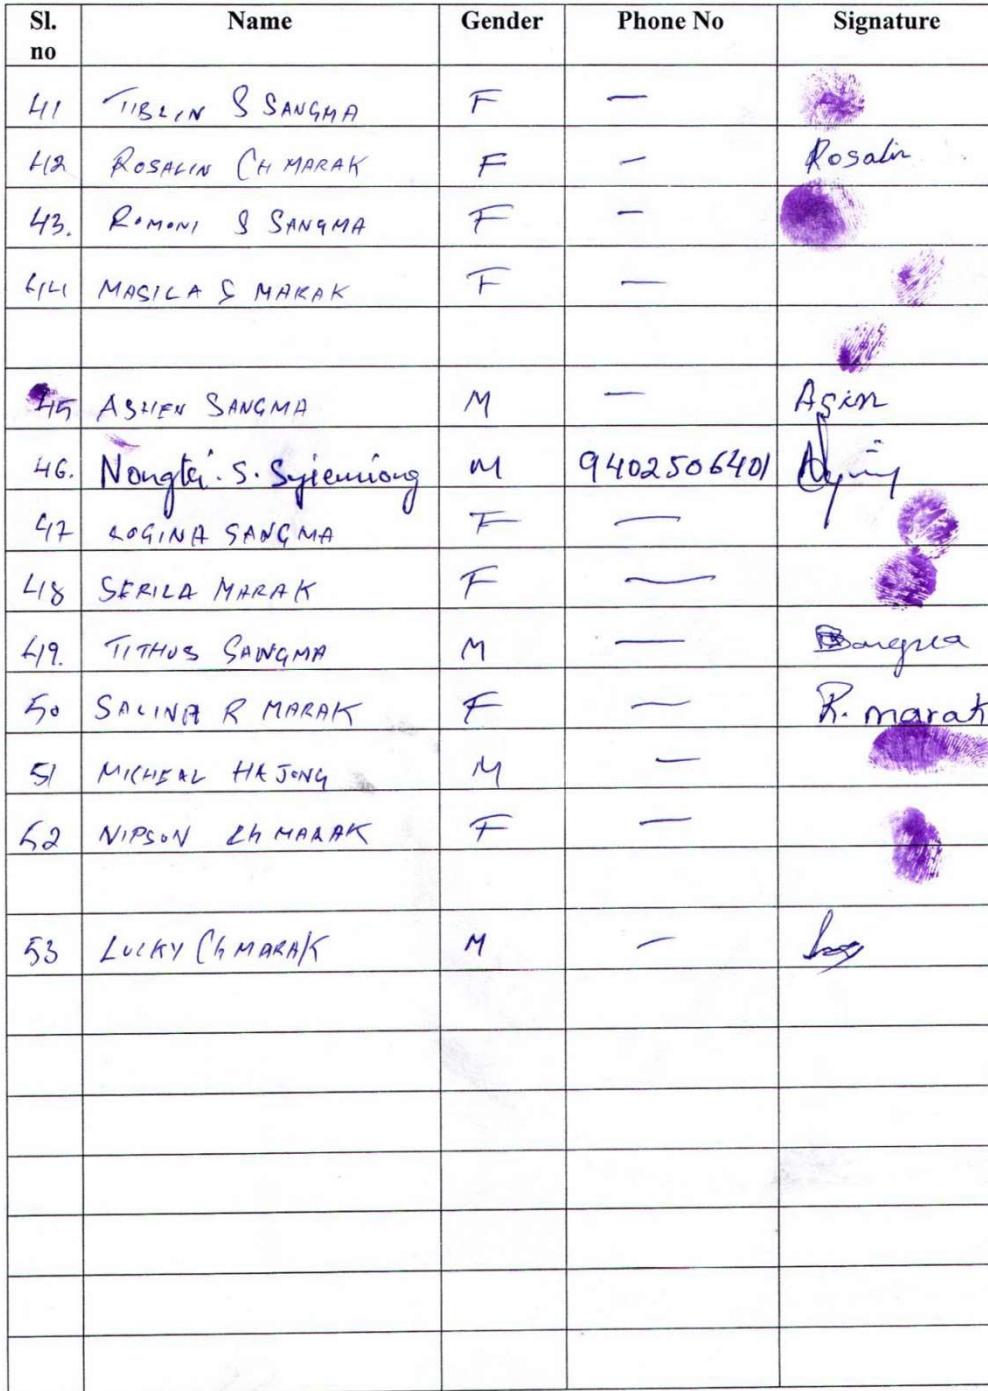 Sl. no Name Gender Phone No Signature
41 TIBLIN S SANGMA F —
42 ROSALIN CH MARAK F — Rosalin
43. ROMONI S SANGMA F —
44 MASILA S MARAK F —
45 ASHEN SANGMA M — Asin
46. Nongtei. S. Syiemiong M 9402506401
47 ROGINA SANGMA F —
48 SERILA MARAK F —
49. TITHUS SANGMA M —
50 SALINA R MARAK F — R. marak
51 MICHEAL HAJONG M —
52 NIPSON Ch MARAK F —
53 LUCKY Ch MARAK M —